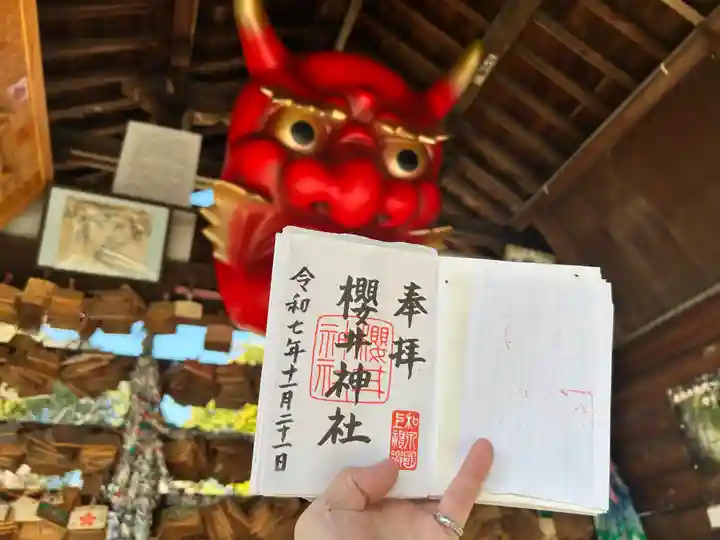 奉拝
櫻井神社
令和七年十一月二十一日